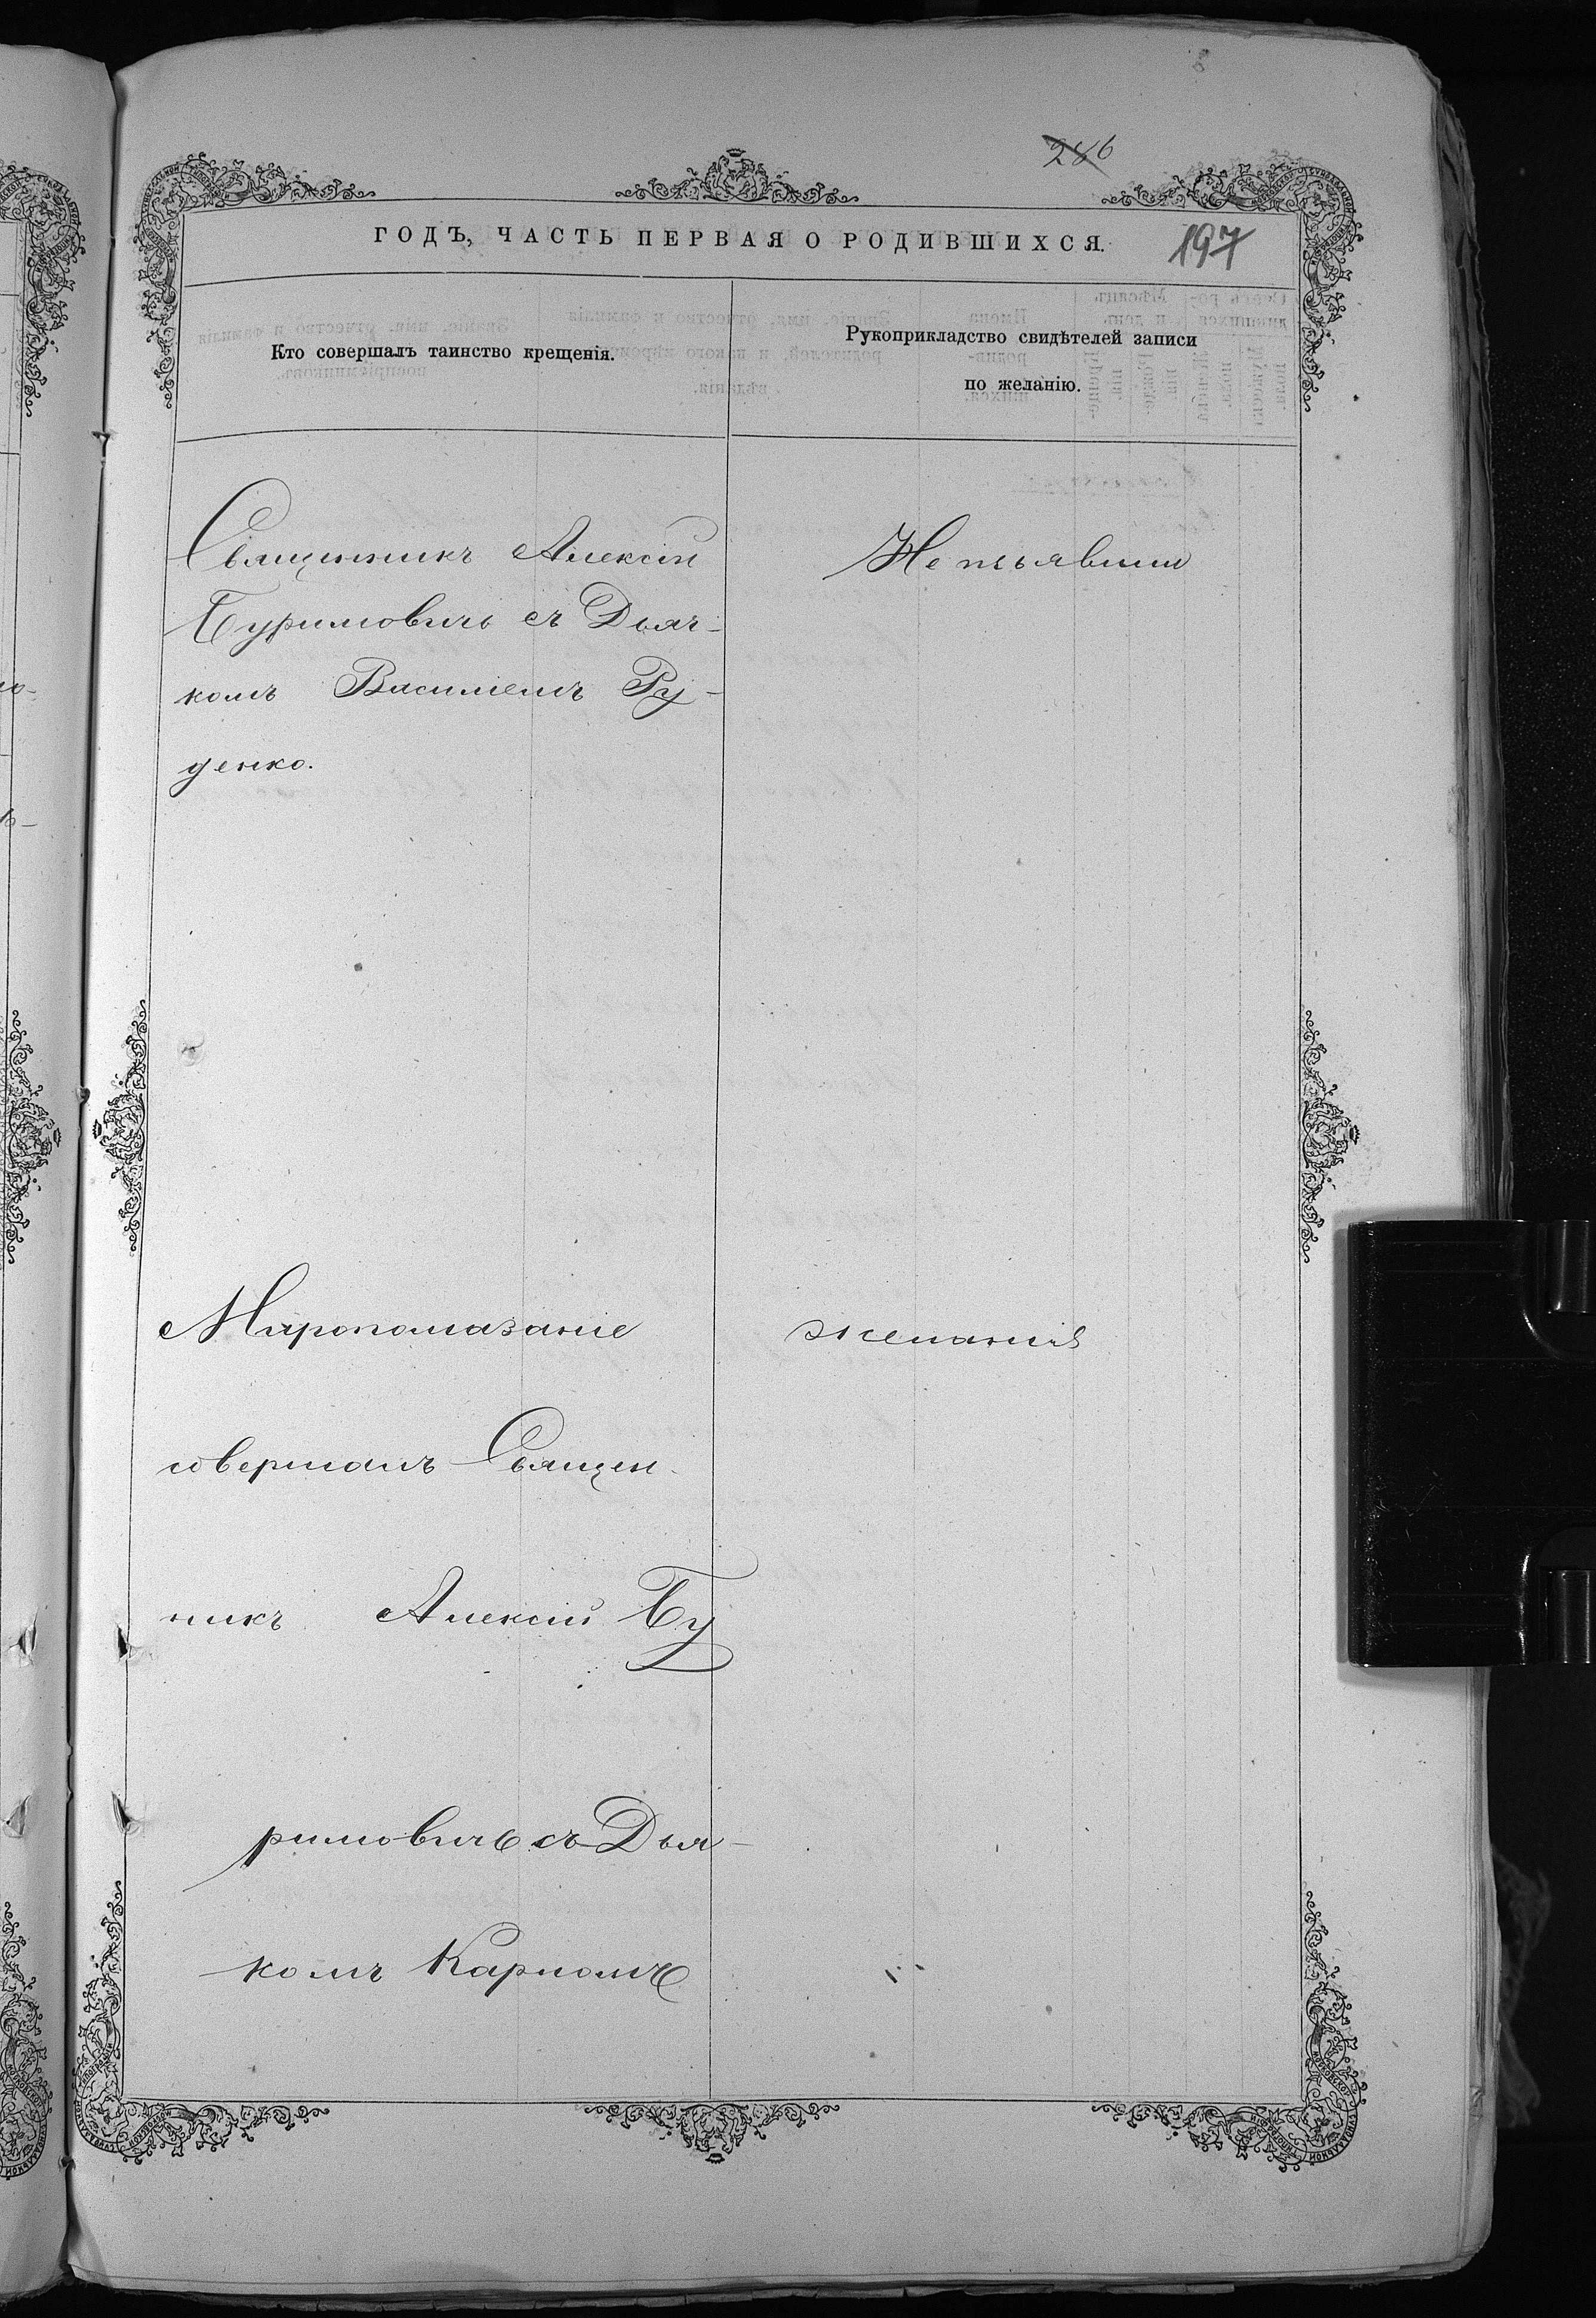 286
ГОДЪ, ЧАСТЬ ПЕРВАЯ О РОДИВШИХСЯ.
197
Кто совершалъ таинство крещенія.
Рукоприкладство свидѣтелей записи
по желанію.
Священникъ Алексій
Не изъявили
Буримовичь съ Дьяч-
комъ Василіемъ Ру-
денко.
Миропомазаніе
желанія
совершалъ Священ-
никъ Алексій Бу
римовичь съ Дья-
комъ Карпомъ